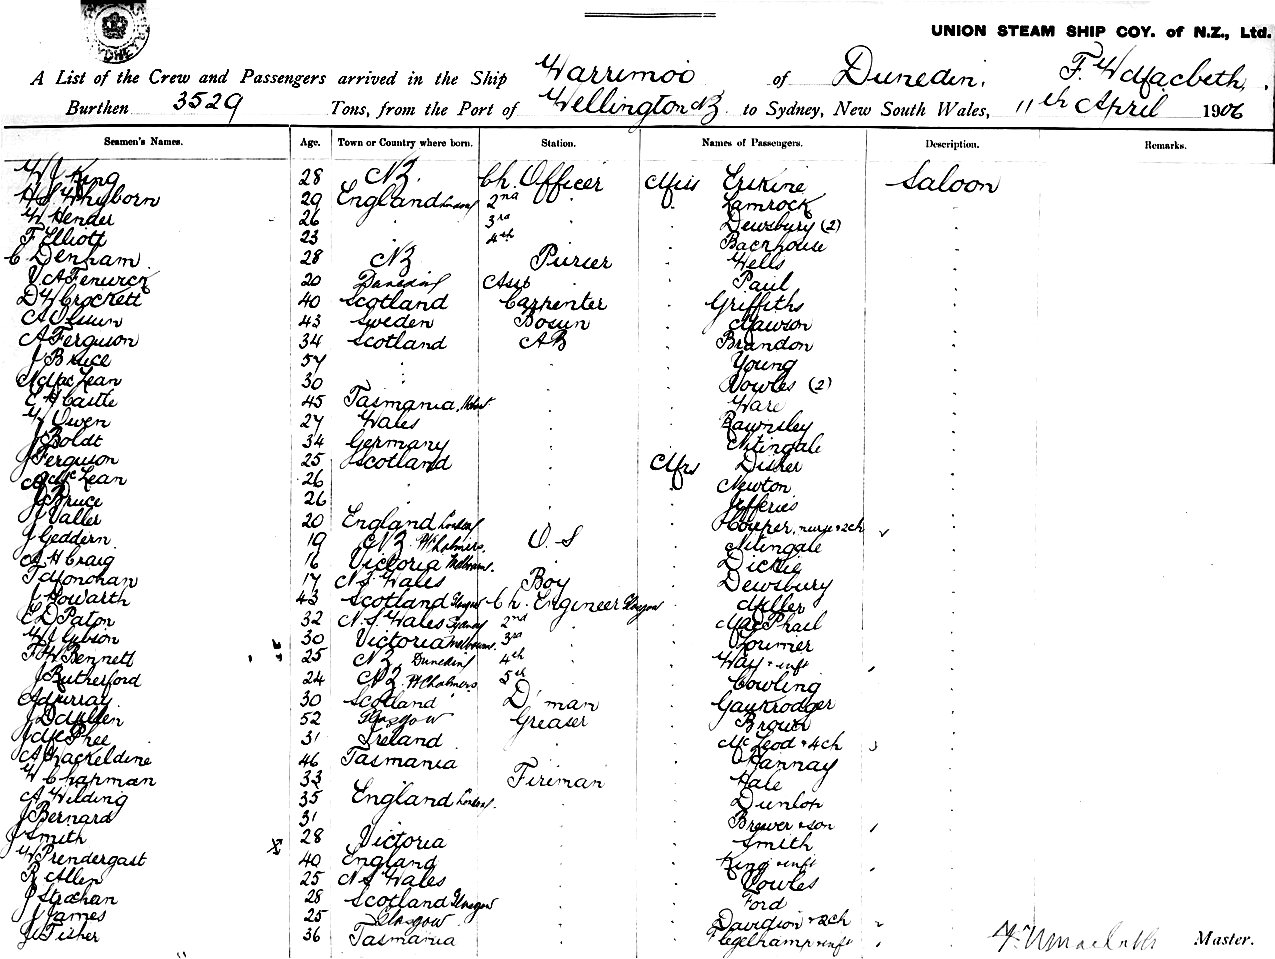 UNION STEAM SHIP COY. of N.Z., Ltd.
A List of the Crew and Passengers arrived in the Ship Warrimoo of Dunedin, F. W. Macbeth,
Burthen 3529 Tons, from the Port of Wellington NZ to Sydney, New South Wales, 11th April 1906
Seamen's Names. Age. Town or Country where born. Station. Names of Passengers. Description. Remarks.
W J King 28 NZ. Ch. Officer Miss Erskine Saloon
Whyborn 29 England London 2nd " " Kamrock
W Hender 26 " 3rd " " Dewsbury (2)
F Elliott 23 " 4th " " Backhouse
C Denham 28 NZ Purser " Wells
V. A Fenwick 20 Dunedin Ass " Paul
D W Crockett 40 Scotland Carpenter " Griffiths
A Olsson 43 Sweden Bosun " Mawson
A Ferguson 34 Scotland AB " Brandon
J Bruce 57 " " " Young
N McLean 30 " " " Vowles (2)
E H Castle 45 Tasmania, Hobart " " Ware
W Owen 27 Wales " " Rawnsley
J Boldt 34 Germany " " Nitingale
J Ferguson 25 Scotland " Mrs Disher
McLean 26 " " " Newton
J Bruce 26 " " " Jefferies
J Waller 20 England London " " Hooper, nurse & 2ch
J Geddern 19 NZ. Pt Chalmers. O. S " Nitingale
A H Craig 16 Victoria Melbourne. " " Dickie
T Monohan 17 N. S. Wales Boy " Dewsbury
J Howarth 43 Scotland Glasgow Ch. Engineer Glasgow " Miller
E D Paton 32 N. S. Wales Sydney 2nd " " MacPhail
W J Gibson 30 Victoria Melbourne. 3rd " "
F W Bennett 25 NZ. Dunedin 4th " " Way & inft
J Rutherford 24 NZ Pt Chalmers 5th " Cowling
A Murray 30 Scotland D'man " Gaukrodger
J D Mullen 52 Glasgow Greaser " Brown
J McPhee 31 Ireland " " McLeod & 4ch
A Thackeldine 46 Tasmania " " Hannay
W Chapman 33 " Fireman " Hale
A Wilding 35 England London. " " Dunlop
J Bernard 31 " " " Brewer & son
J Smith 28 Victoria " " Smith
W Prendergast 40 England " " King & inft
R Allen 25 N. S. Wales " " Vowles
J Strachan 28 Scotland Glasgow " " Ford
J James 25 Glasgow " " Davidson & 2ch
J Fisher 36 Tasmania " " Flegelhamp & inft
F. W Macbeth Master.